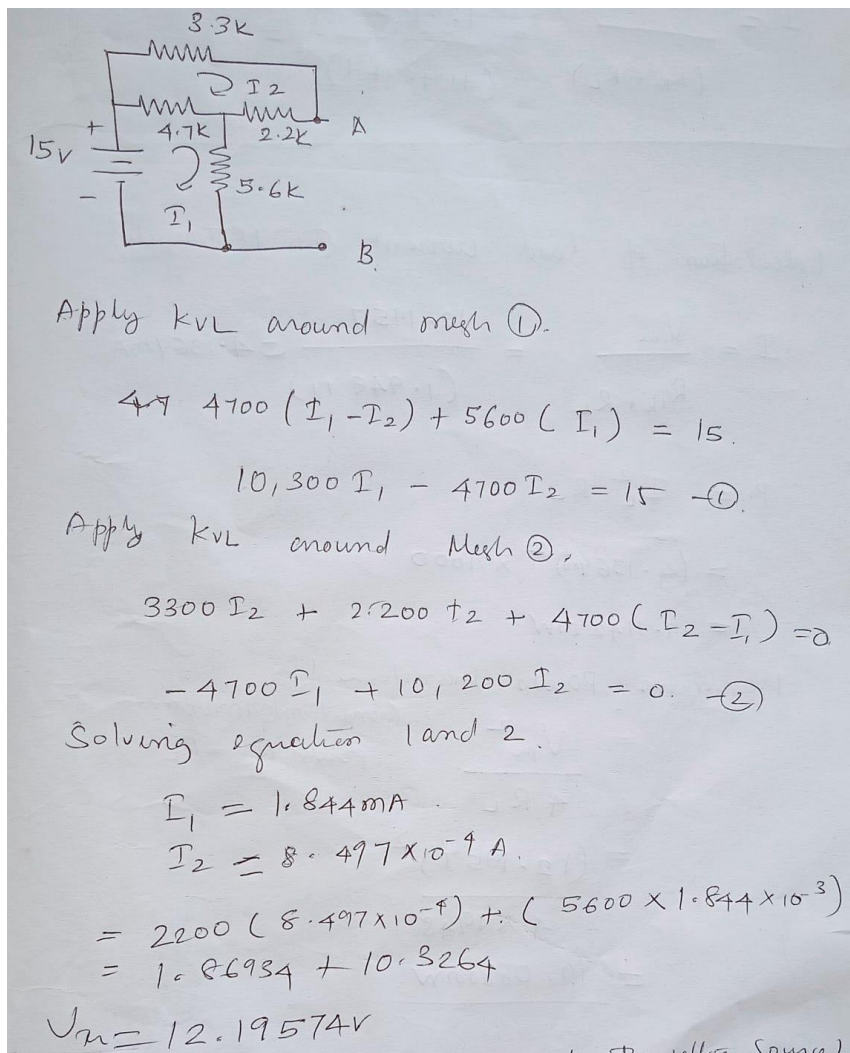 3.3K
I2
4.7K 2.2K A
15V + -
5.6K
I1
B.
Apply KVL around mesh ①.
4700 (I1 - I2) + 5600 ( I1 ) = 15.
10,300 I1 - 4700 I2 = 15 -①.
Apply KVL around Mesh ②,
3300 I2 + 2.200 I2 + 4700 ( I2 - I1 ) = 0
- 4700 I1 + 10,200 I2 = 0. -②
Solving equation 1 and 2.
I1 = 1.844mA.
I2 = 8.497 x 10-4 A.
= 2200 ( 8.497 x 10-4 ) + ( 5600 x 1.844 x 10-3 )
= 1.86934 + 10.3264
= 12.19574V
Source)